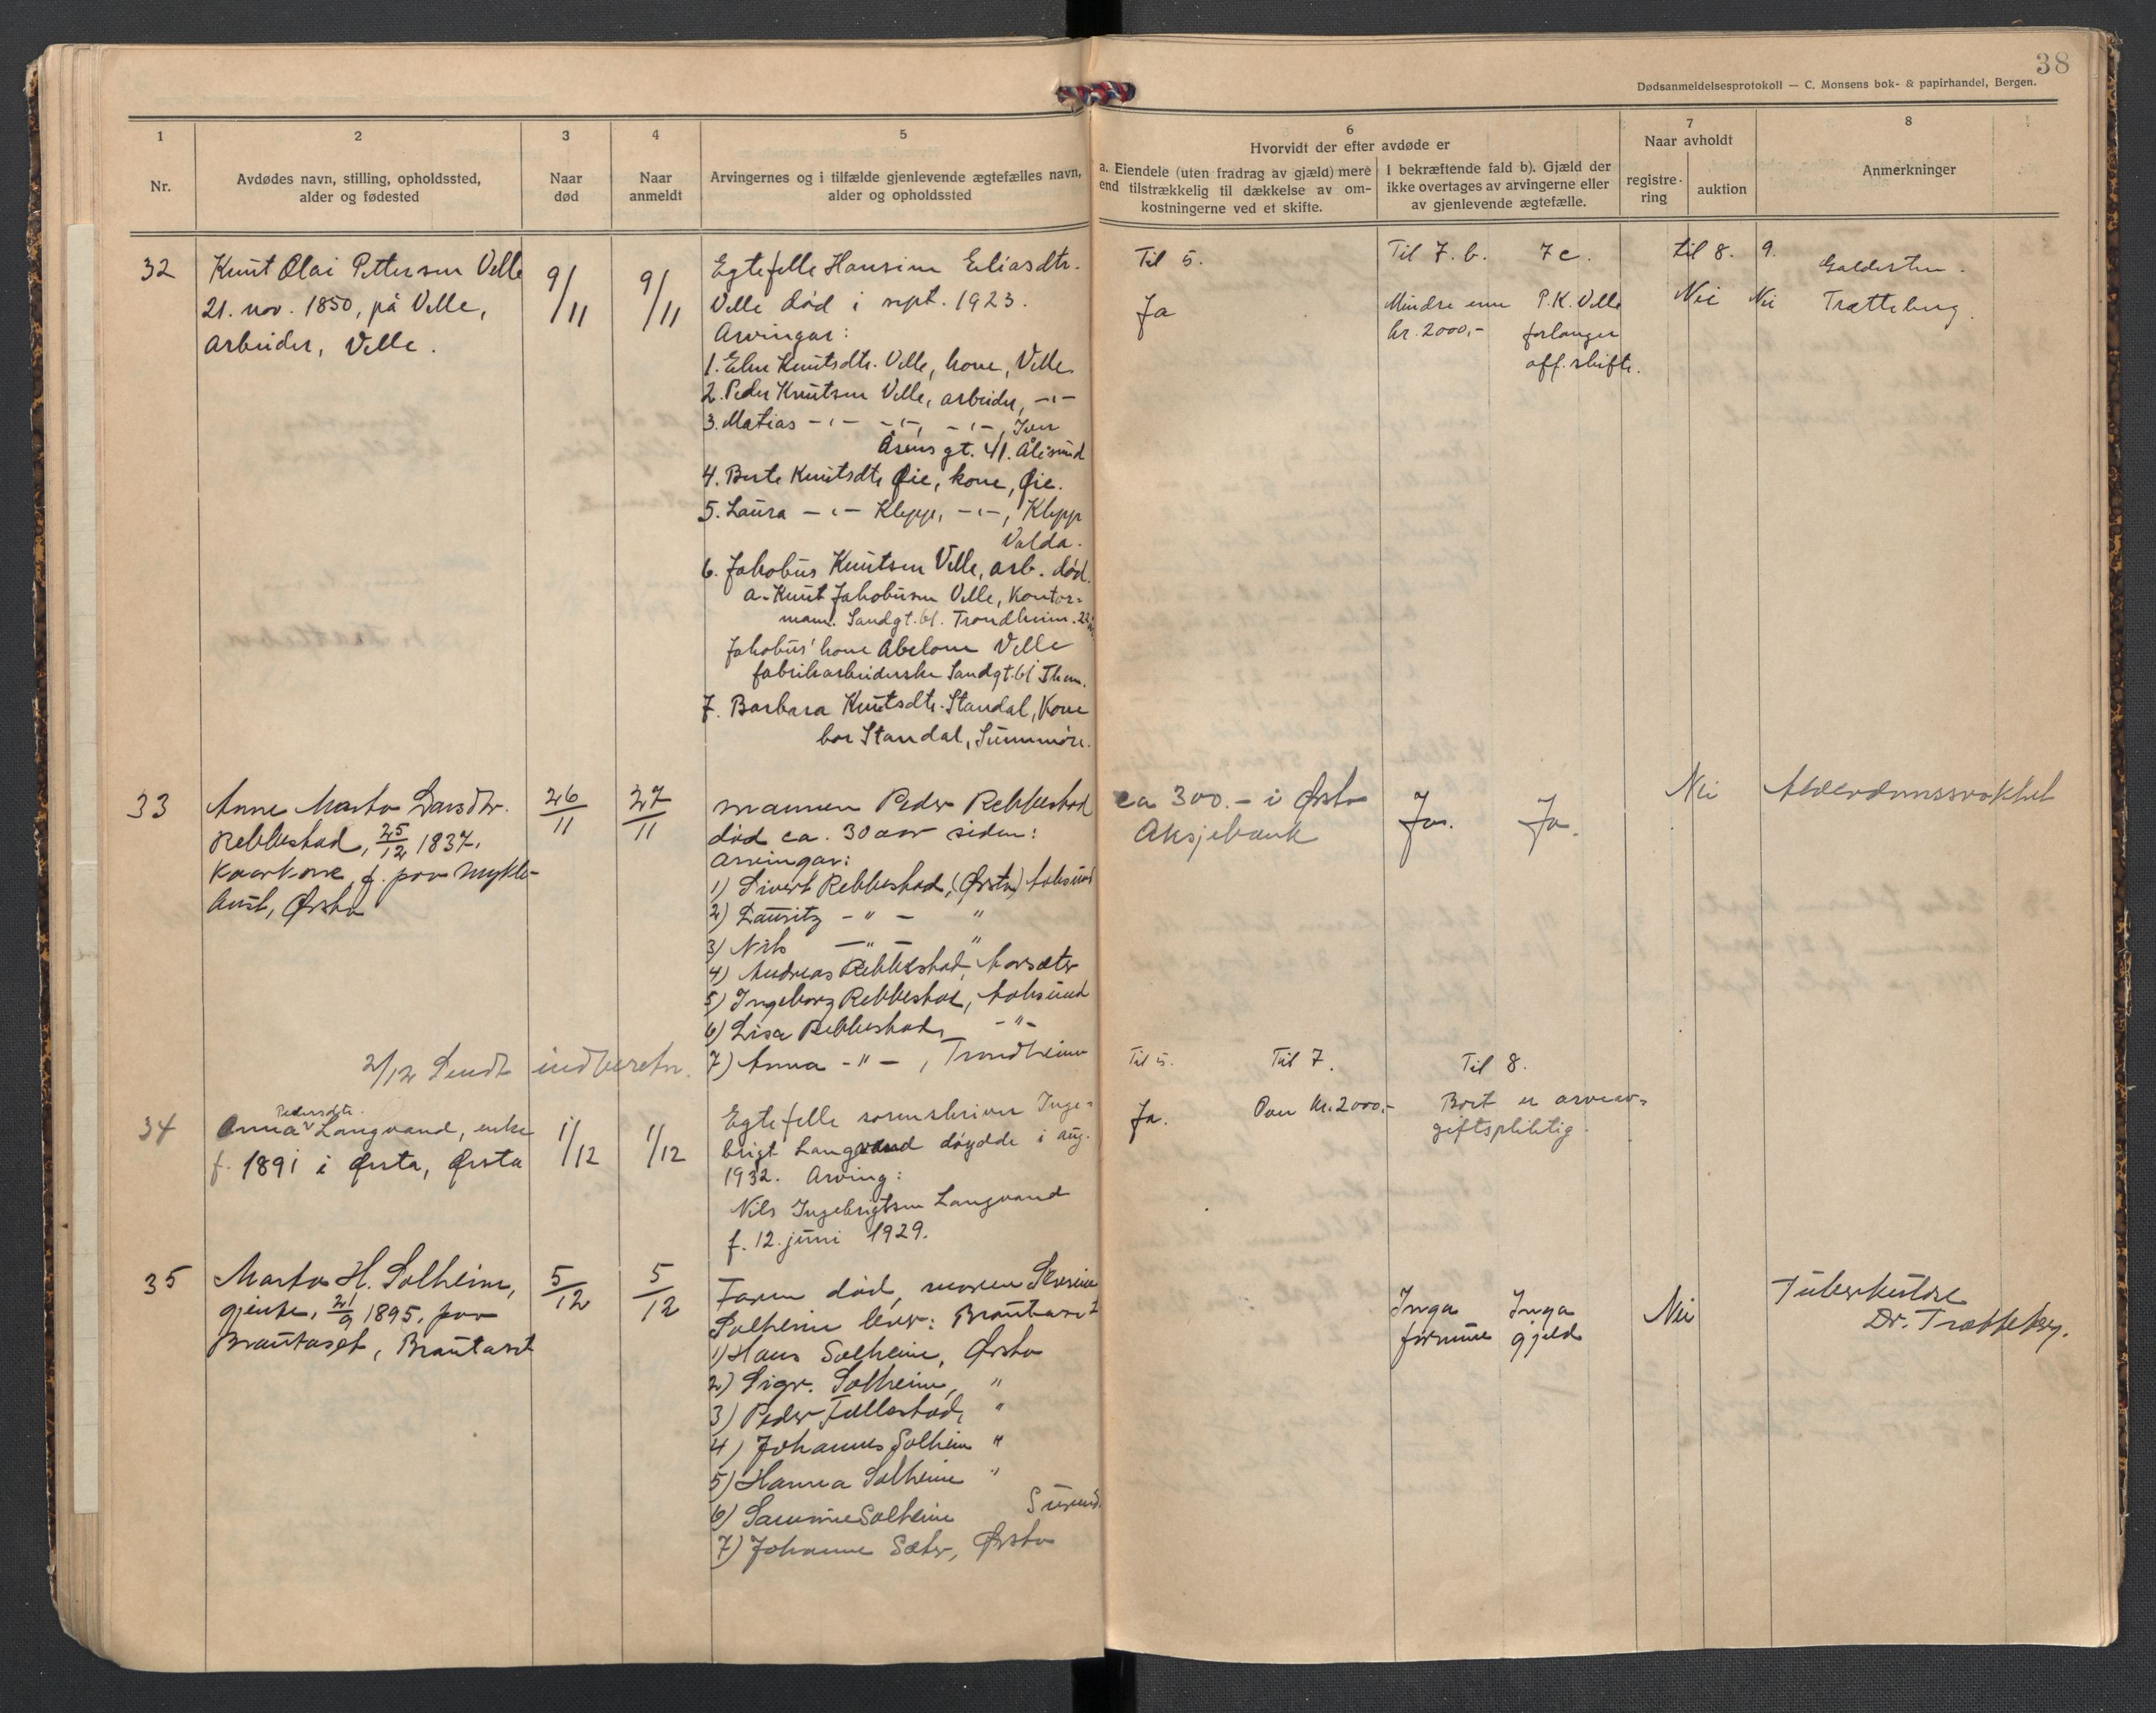 38
Dødsanmeldelsesprotokoll — C. Monsens bok- & papirhandel, Bergen.
1
2
3
4
5
Nr.
Avdødes navn, stilling, opholdssted,
alder og fødested
Naar
død
Naar
anmeldt
Arvingernes og i tilfælde gjenlevende ægtefælles navn,
alder og opholdssted
6
Hvorvidt der efter avdøde er
a. Eiendele (uten fradrag av gjæld) mere
end tilstrækkelig til dækkelse av om-
kostningerne ved et skifte.
I bekræftende fald b). Gjæld der
ikke overtages av arvingerne eller
av gjenlevende ægtefælle.
7
Naar avholdt
registre-
ring
auktion
8
Anmerkninger
32
Knut Olai Pettersen Velle
21. nov. 1850, på Velle,
arbeider, Velle.
9/11
9/11
Egtefelle Hansine Eliasdtr.
Velle død i sept. 1923.
Arvingar:
1. Eline Knutsdtr. Velle, kone, Velle
2. Peder Knutsen Velle, arbeider, -"-
3. Matias -"- -"-, -"-, Iver
Åsens gt. 41. Ålesund
4. Berte Knutsdtr Øie, kone, Øie.
5. Laura -"- Klepp, -"-, Klepp
Valda.
6. Jakobus Knutsen Velle, arb. død.
a. Knut Jakobusen Velle, Kontor=
mann. Sandgt. 61. Trondheim. 22
Jakobus' kone Abelone Velle
fabrikarbeiderske Sandgt. 61 Thm.
7. Barbara Knutsdtr. Standal, Kone
bor Standal, Sunnmøre.
Til 5.
Ja
Til 7. b.
Mindre enn
kr. 2000,-
7 c.
P.K. Velle
forlanger
off. skifte.
til 8.
Nei
9.
Nei
Galdestein.
Trætteberg.
33
Anne Marta Larsdtr.
Rebbestad, 25/12 1837,
Kaarkone, f. paa Mykle-
bust, Ørsta
26/11
27/11
Mannen Peder Rebbestad
død ca. 30 aar siden:
Arvingar:
1) Sivert Rebbestad, (Ørsta) Aalesund
2) Lauritz - " - "
3) Nils - " - "
4) Andreas Rebbestad,
5) Ingeborg Rebbestad, Aalesund
6) Lisa Rebbestad, - " -
7) Anna - " -, Trondheim
ca 300.- i Ørsta
Aksjebank
Ja.
Ja.
Nei
Alderdomssvakhet
2/12 Sendt indberetn.
34
Pedersdtr.
Anna Langvand, enke
f. 1891 i Ørsta, Ørsta
1/12
1/12
Egtefelle sorenskriver Inge=
brigt Langvand døydde i aug.
1932. Arving:
Nils Ingebrigtsen Langvand
f. 12. juni 1929.
Til 5.
Ja.
Til 7.
Over kr. 2000,-
Til 8.
Bort er arveav=
giftspliktig.
35
Marta H. Solheim,
gjente, 21/9 1895, paa
Brautaset, Brautaset
5/12
5/12
Faren død, moren Severine
Solheim lever: Brautaset
1) Hans Solheim, Ørsta
2) Sigv. Solheim, "
3) Peder Follestad, "
4) Johannes Solheim "
5) Hanna Solheim "
6) Solheim
7) Johanne Sæter, Ørsta
Inga
formue
Inga
gjeld
Nei
Tuberkulose
Dr. Trætteberg.